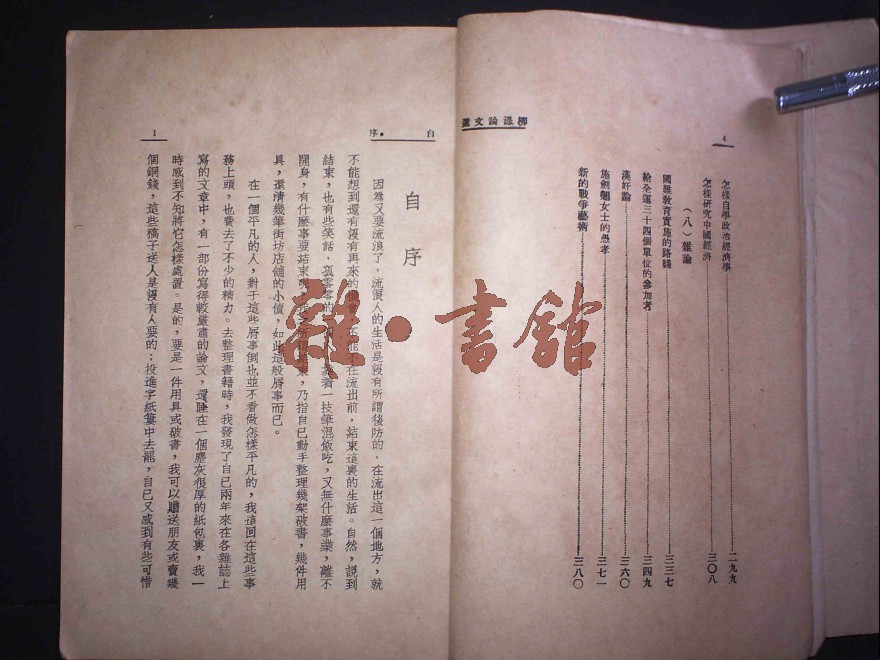 柳湜論文選
4
怎樣自學政治經濟學……二九九
怎樣研究中國經濟……三〇八
（八）雜論
國難教育實施的路碍……三三七
給全運三十四個單位的參加者……三四九
漢奸論……三六〇
施劍翹女士的愚孝……三七一
新的戰爭藝術……三八〇
自序
1
自序
因為又要流浪了，流浪人的生活是沒有所謂後防的，在流出這一個地方，就
不能想到還有沒有再來的 在流出前，結束這裏的生活。自然，說到
結束，也有些笑話，孤零零的 着一技筆混飯吃，又無什麼事業，離不
開身，有什麼事要結束 乃指自己動手整理幾架破書，幾件用
具，還清幾筆街坊店鋪的小債，如此這般屑事而已。
在一個平凡的人，對于這些屑事倒也並不看做怎樣平凡的，我這回在這些事
務上頭，也費去了不少的精力。去整理書籍時，我發現了自己兩年來在各雜誌上
寫的文章中，有一部份寫得較嚴肅的論文，還睡在一個塵灰很厚的紙包裏，我一
時感到不知將它怎樣處置。是的，要是一件用具或破書，我可以贈送朋友或賣幾
個銅錢，這些稿子送人是沒有人要的；投進字紙簍中去罷，自己又感到有些可惜
雜·書館